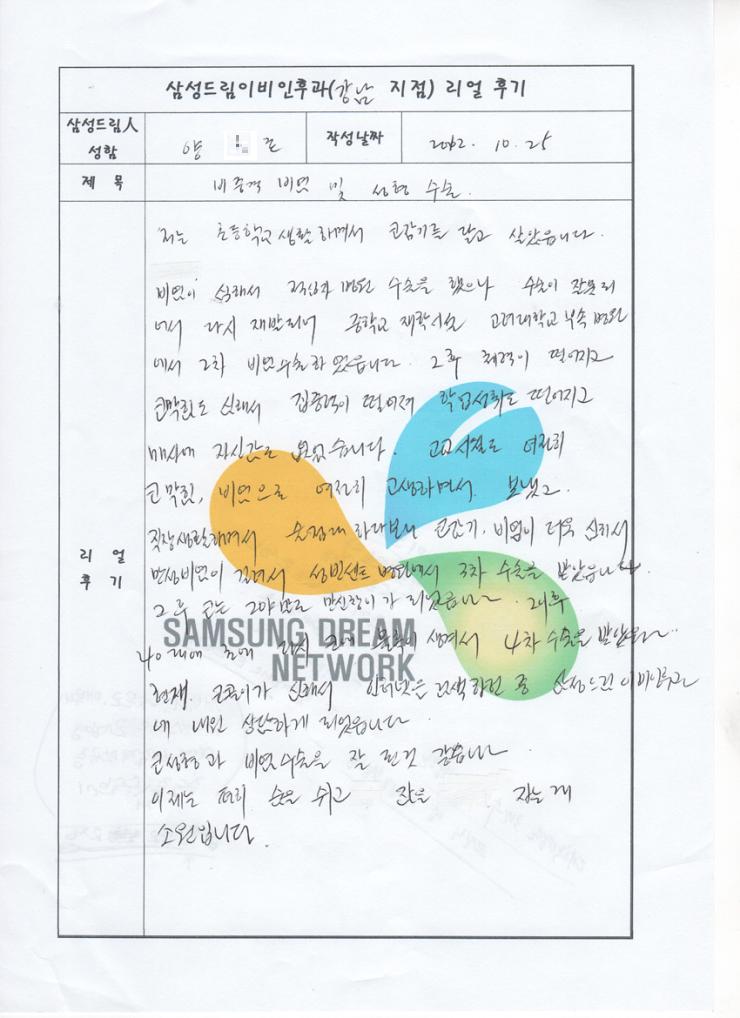 삼성드림이비인후과(강남 지점) 리얼 후기
삼성드림人 성함
양 준
작성날짜
2012. 10. 25
제 목
비중격 비염 및 성형 수술.
리 얼 후 기
저는 초등학교 생활하면서 코감기를 달고 살았읍니다.
비염이 심해서 병원 수술을 했으나 수술이 잘못되
어서 다시 재발되어 중학교 재학시절 고려대학교 부속 병원
에서 2차 비염수술하였읍니다. 그후 체력이 떨어지고
코막힘도 심해서 집중력이 떨어져 학업성취도 떨어지고
매사에 자신감도 없었습니다. 고교시절도 여전히
코막힘, 비염으로 여전히 고생하면서 보냈고.
직장생활하면서 하다보니 코감기, 비염이 더욱 심해서
만성비염이 걸려서 성빈센트 병원에서 3차 수술을 받았읍니다
그후 코는 그야말로 만신창이가 되었읍니다. 그이후
40대에 초에 다시 코에 물혹이 생겨서 4차 수술을 받았음..
SAMSUNG DREAM
NETWORK
현재. 코골이가 심해서 인터넷을 검색하던 중 삼성드림이비인후과
에 내원 상담하게 되었읍니다.
코성형과 비염수술을 잘 된것 같습니다
이제는 편히 숨을 쉬고 잠을 자는게
소원입니다.